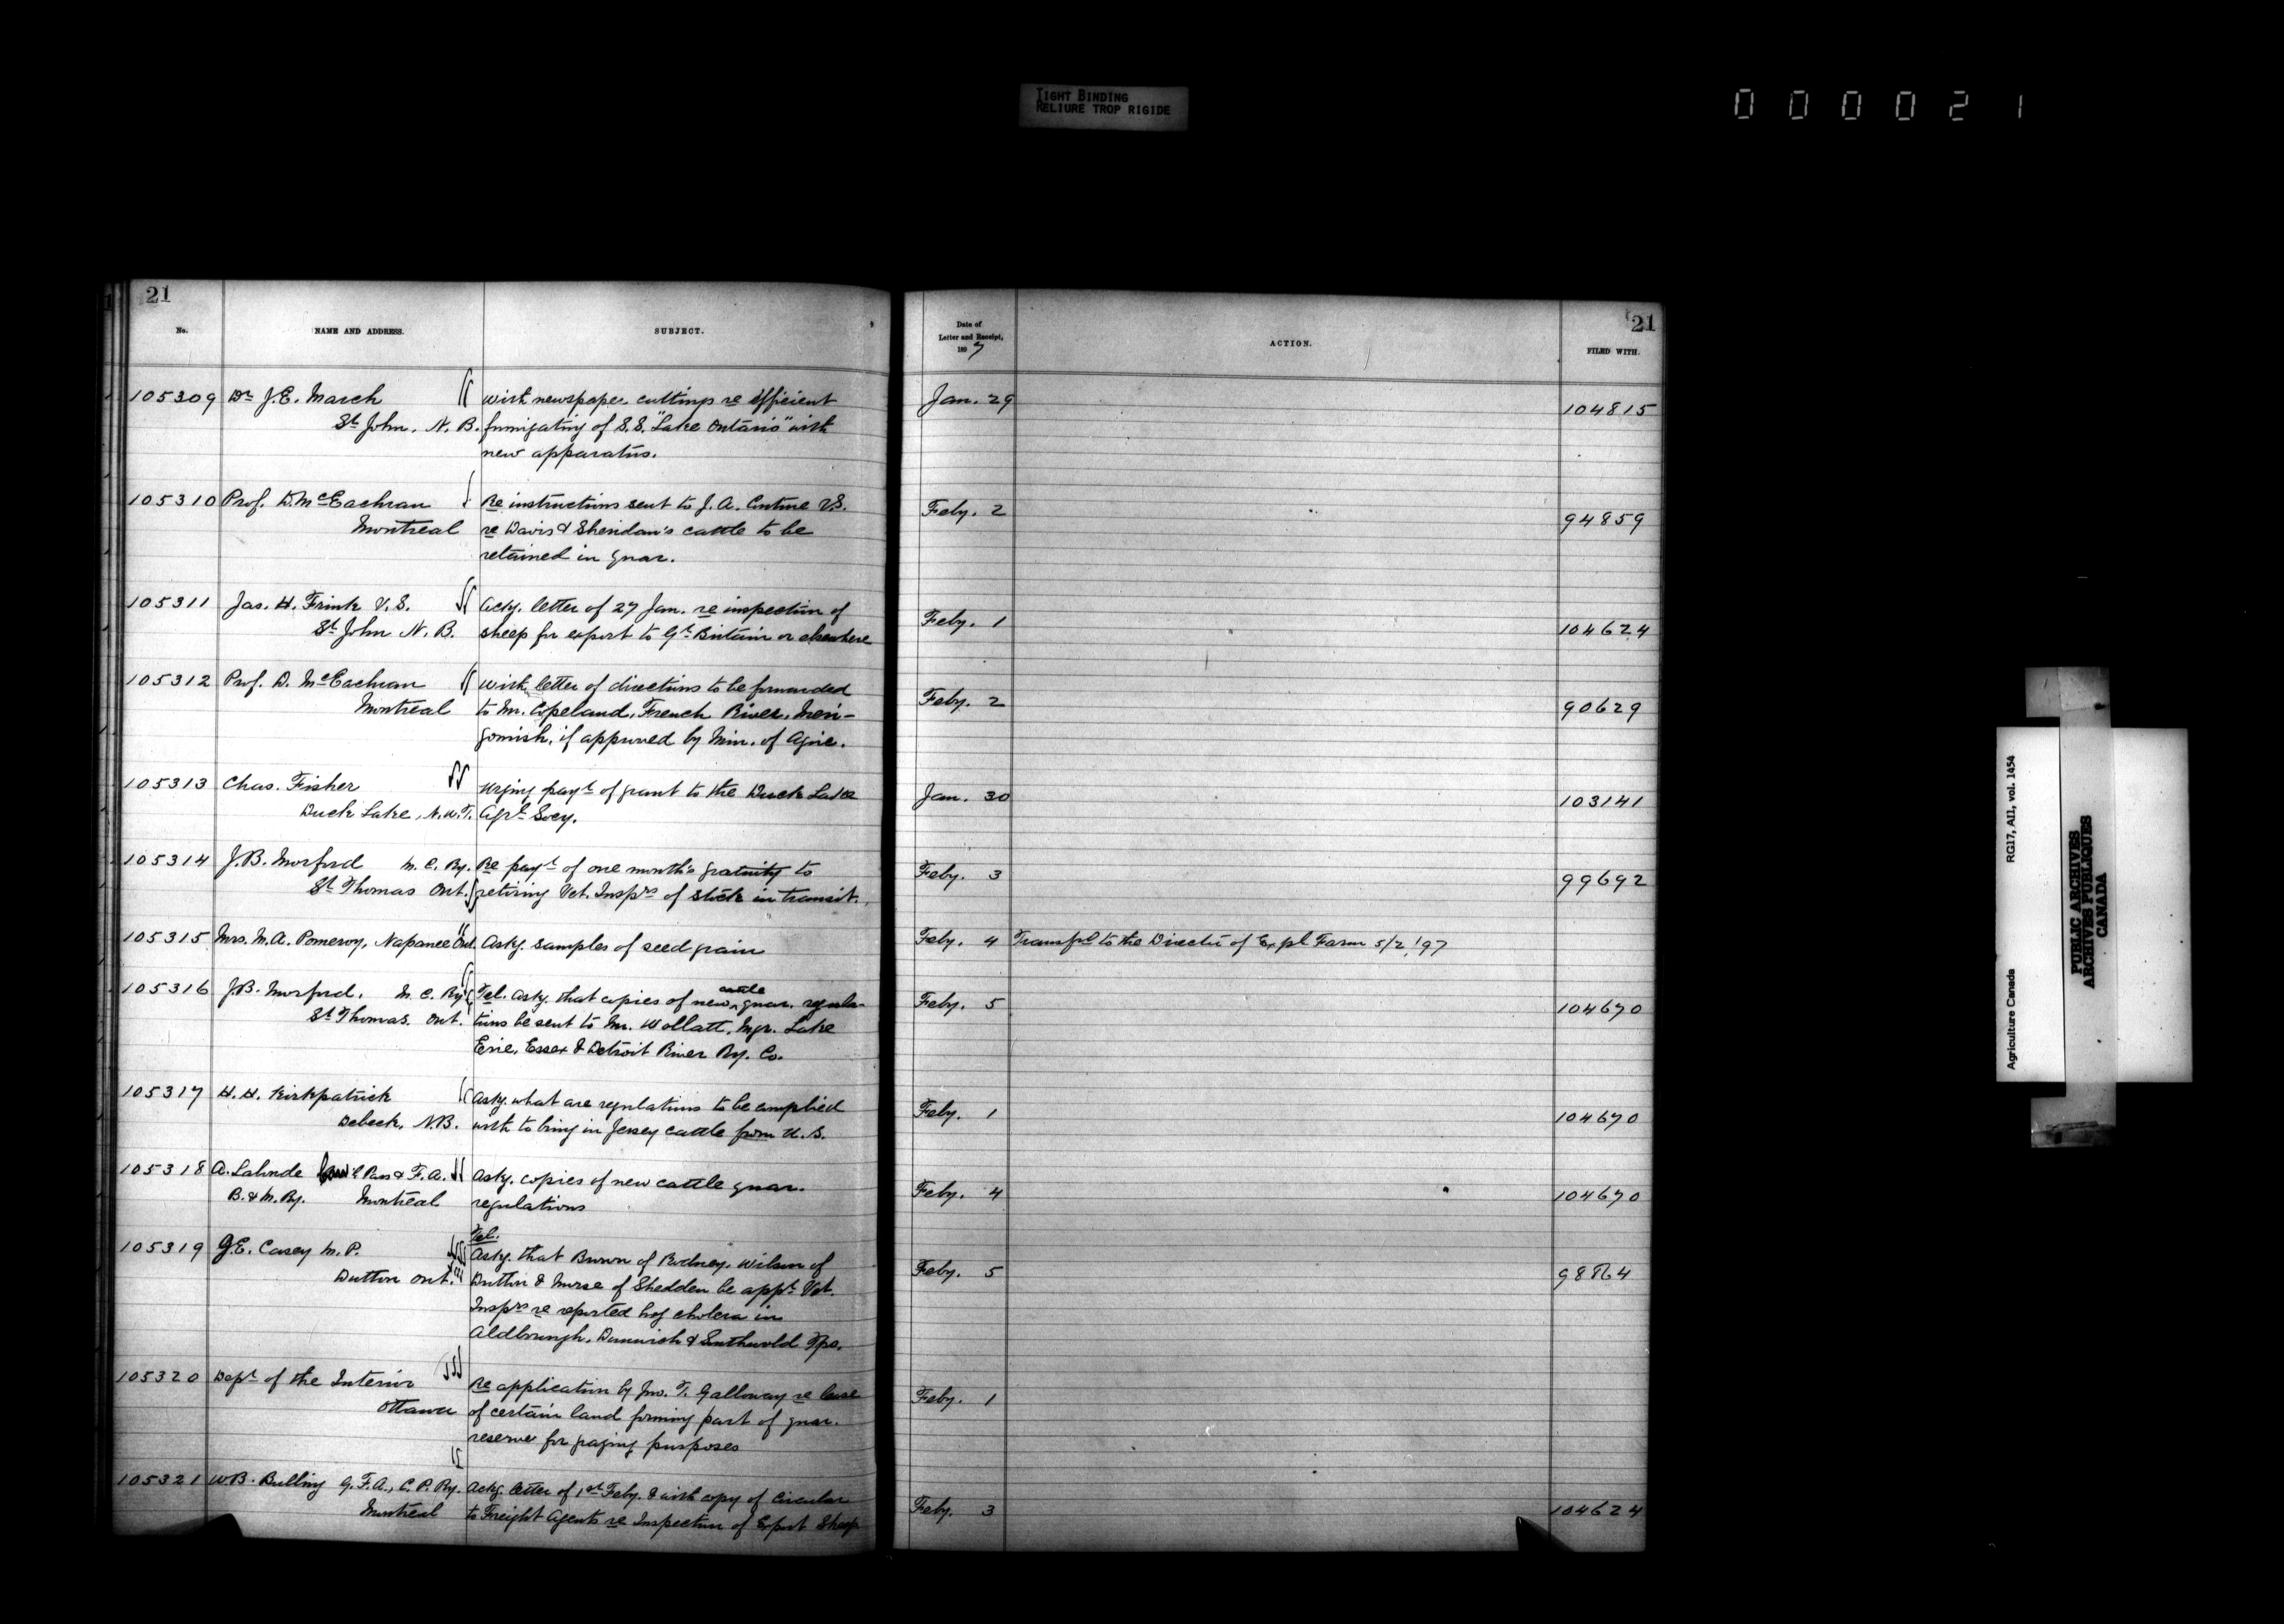 TIGHT BINDING
RELIURE TROP RIGIDE
000021
21
No. NAME AND ADDRESS. SUBJECT.
105309 Dr J.E. March with newspaper cuttings re efficient
St John, N.B. fumigating of S.S. "Lake Ontario" with
new apparatus.
105310 Prof. D. McEachran Re instructions sent to J.A. Couture V.S.
Montreal re Davis & Sheridan's cattle to be
retained in quar.
105311 Jas. H. Frink V.S. Acky. letter of 27 Jan. re inspection of
St John N.B. sheep for export to Gt Britain or elsewhere
105312 Prof. D. McEachran with letter of directions to be forwarded
Montreal to Mr. Copeland, French River, Meri-
gomish, if approved by Min. of Agric.
105313 Chas. Fisher Urging payt of grant to the Duck Lake
Duck Lake, N.W.T. Agrl Socy.
105314 J.B. Morford M.C. Ry. Re payt of one month's gratuity to
St Thomas Ont. retiring Vet. Insprs of stock in transit.
105315 Mrs. M.A. Pomeroy, Napanee Ont. Askg. samples of seed grain
105316 J.B. Morford, M.C. Ry. Tel. Askg. that copies of new cattle quar. regula-
St Thomas. Ont. tions be sent to Mr. Wollatt, Mgr. Lake
Erie, Essex & Detroit River Ry. Co.
105317 H.H. Kirkpatrick Askg. what are regulations to be complied
Debeck, N.B. with to bring in Jersey cattle from U.S.
105318 A. Lalonde Pass & F.A. Askg. copies of new cattle quar.
B. & M. Ry. Montreal regulations
Tel.
105319 G.E. Casey M.P. Askg. that Brown of Rodney, Wilson of
Dutton Ont. Dutton & Morse of Shedden be appt. Vet.
Insprs re reported hog cholera in
Aldborough, Dunwich & Southwold Tps.
105320 Dept of the Interior Re application by Jno. T. Galloway re lease
Ottawa of certain land forming part of quar.
reserve for grazing purposes
105321 W.B. Bulling G.F.A., C.P. Ry. Ackg. letter of 1st Feby. & with copy of Circular
Montreal to Freight Agents re Inspection of Export Sheep
21
Date of
Letter and Receipt,
1897 ACTION. FILED WITH.
Jan. 29 104815
Feby. 2 94859
Feby. 1 104624
Feby. 2 90629
Jan. 30 103141
Feby. 3 99692
Feby. 4 Transfd to the Director of Expl Farm 5/2/97
Feby. 5 104670
Feby. 1 104670
Feby. 4 104670
Feby. 5 98864
Feby. 1
Feby. 3 104624
Agriculture Canada RG17, AII, vol. 1454
PUBLIC ARCHIVES
ARCHIVES PUBLIQUES
CANADA